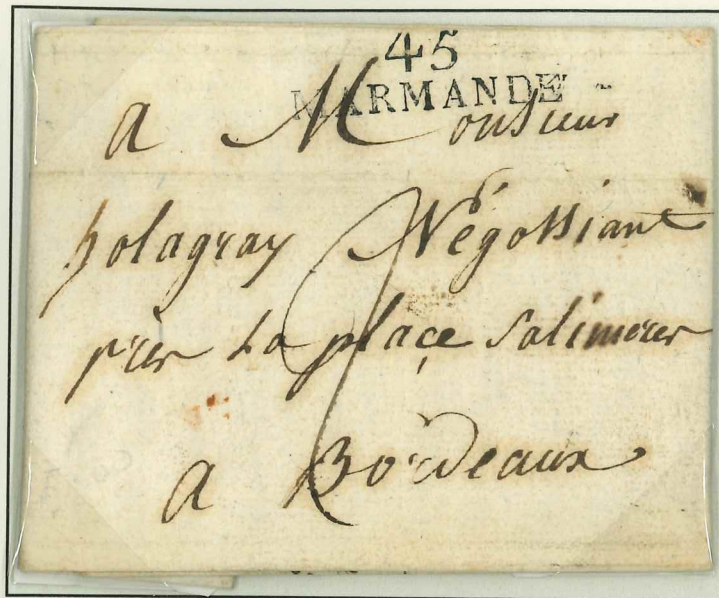 45
MARMANDE
a Monsieur
holagray Négossiant
pres la plaçe Salinieres
a Bordeaux